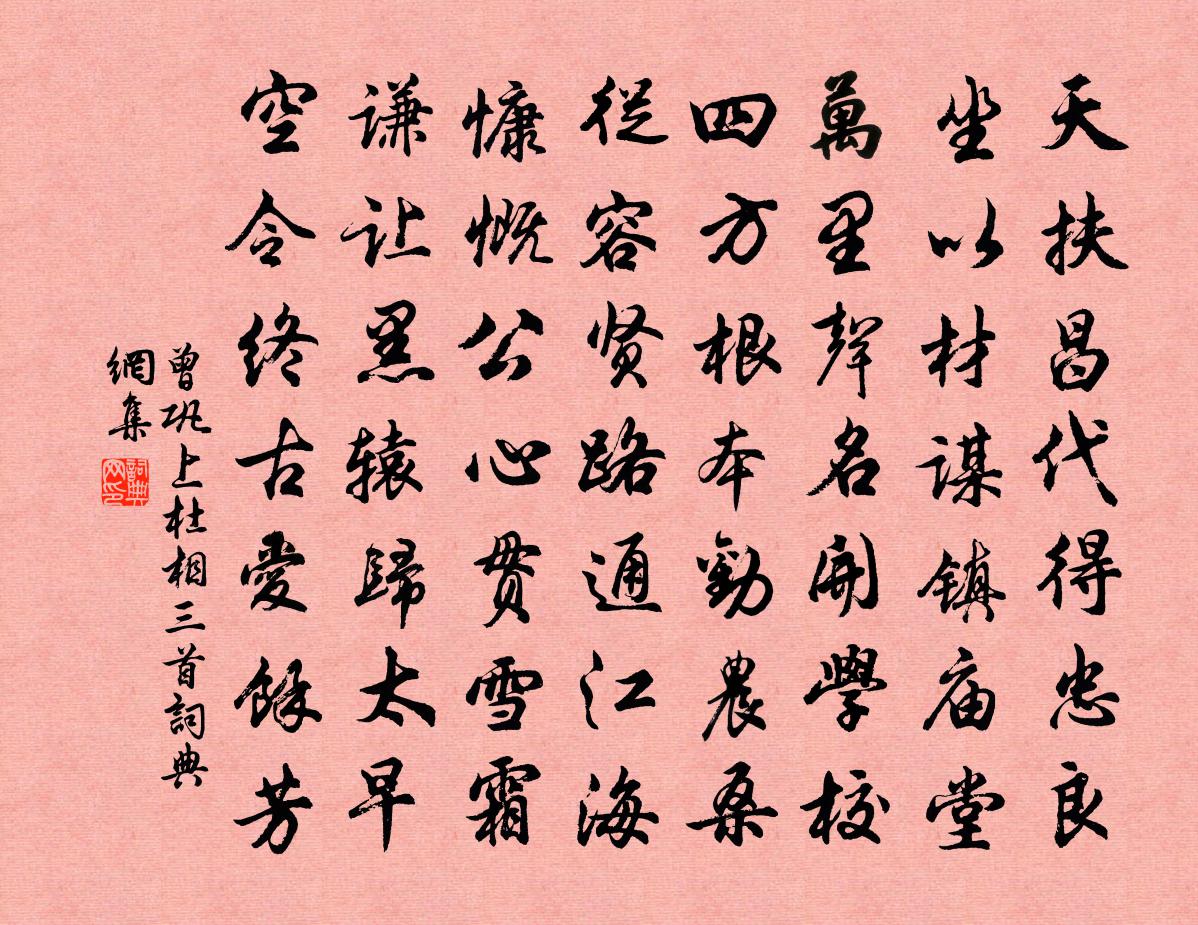 天扶昌代得忠良
坐以材谋镇庙堂
萬里聲名開學校
四方根本勸農桑
從容贤路通江海
慷慨公心贯雪霜
谦让黑辕歸太早
空令终古愛餘芳
曾巩上杜相三首詞典
網集
詞典
网印